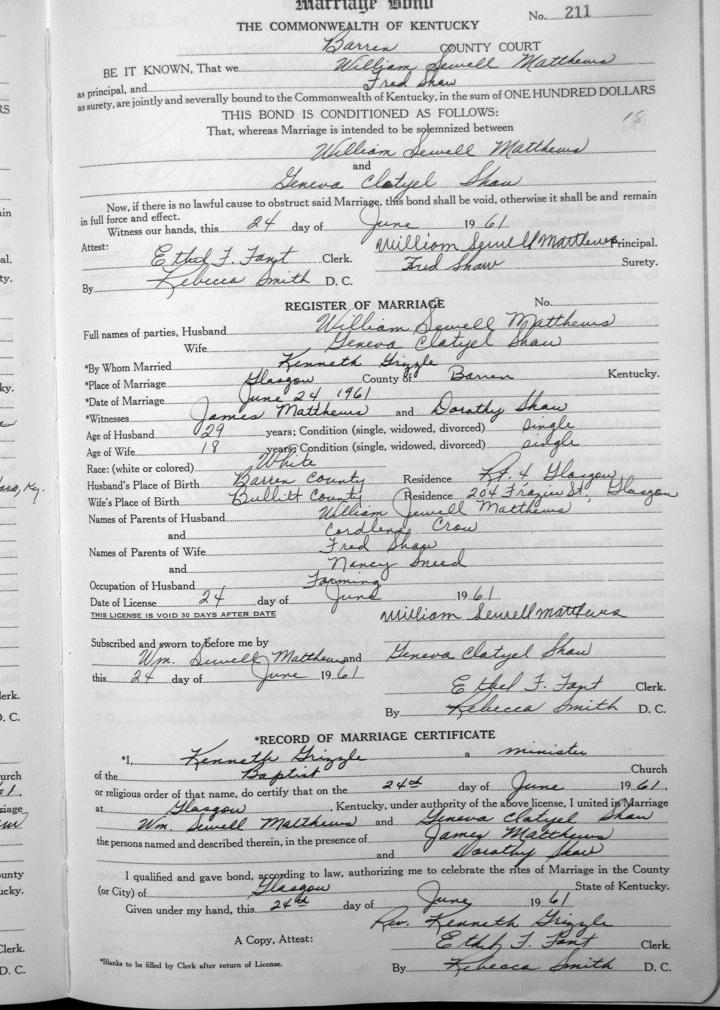 Marriage Bond
No. 211
THE COMMONWEALTH OF KENTUCKY
Barren COUNTY COURT
BE IT KNOWN, That we William Sewell Matthews
as principal, and Fred Shaw
as surety, are jointly and severally bound to the Commonwealth of Kentucky, in the sum of ONE HUNDRED DOLLARS
THIS BOND IS CONDITIONED AS FOLLOWS:
18
That, whereas Marriage is intended to be solemnized between
William Sewell Matthews
and
Geneva Clatyel Shaw
Now, if there is no lawful cause to obstruct said Marriage, this bond shall be void, otherwise it shall be and remain
in full force and effect.
Witness our hands, this 24 day of June 1961
Attest: William Sewell Matthews Principal.
Ethel F. Fant Clerk. Fred Shaw Surety.
By Rebecca Smith D. C.
REGISTER OF MARRIAGE No.
Full names of parties, Husband William Sewell Matthews
Wife Geneva Clatyel Shaw
*By Whom Married Kenneth Grizzle
*Place of Marriage Glasgow County of Barren Kentucky.
*Date of Marriage June 24 1961
*Witnesses James Matthews and Dorothy Shaw
Age of Husband 29 years; Condition (single, widowed, divorced) single
Age of Wife 18 years; Condition (single, widowed, divorced) single
Race: (white or colored) White
Husband's Place of Birth Barren County Residence Rt. 4 Glasgow
Wife's Place of Birth Bullitt County Residence 204 Frazier St, Glasgow
Names of Parents of Husband William Jewell Matthews
and Crow
Names of Parents of Wife Fred Shaw
and Nancy Sneed
Occupation of Husband Farming
Date of License 24 day of June 1961
THIS LICENSE IS VOID 30 DAYS AFTER DATE William Sewell Matthews
Subscribed and sworn to before me by
Wm. Sewell Matthews and Geneva Clatyel Shaw
this 24 day of June 1961
Ethel F. Fant Clerk.
By Rebecca Smith D. C.
*RECORD OF MARRIAGE CERTIFICATE
*I, Kenneth Grizzle a minister
of the Baptist Church
or religious order of that name, do certify that on the 24th day of June 1961.
at Glasgow, Kentucky, under authority of the above license, I united in Marriage
Wm. Sewell Matthews and Geneva Clatyel Shaw
the persons named and described therein, in the presence of James Matthews
and Dorothy Shaw
I qualified and gave bond, according to law, authorizing me to celebrate the rites of Marriage in the County
(or City) of Glasgow State of Kentucky.
Given under my hand, this 24th day of June 1961
Rev. Kenneth Grizzle
A Copy, Attest: Ethel F. Fant Clerk.
*Blanks to be filled by Clerk after return of License. By Rebecca Smith D. C.